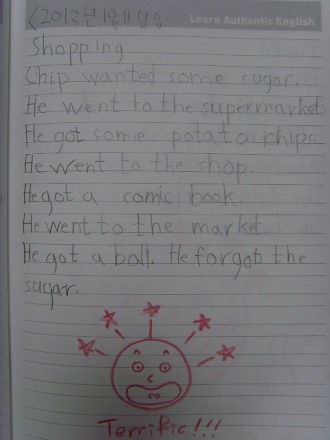 <2013년 1월 11일 금
Learn Authentic English
Shopping
Chip wanted some sugar.
He went to the supermarket.
He got some potatochips.
He went to the shop.
He got a comic book.
He went to the market.
He got a ball. He forgot the
sugar.
Terrific!!!